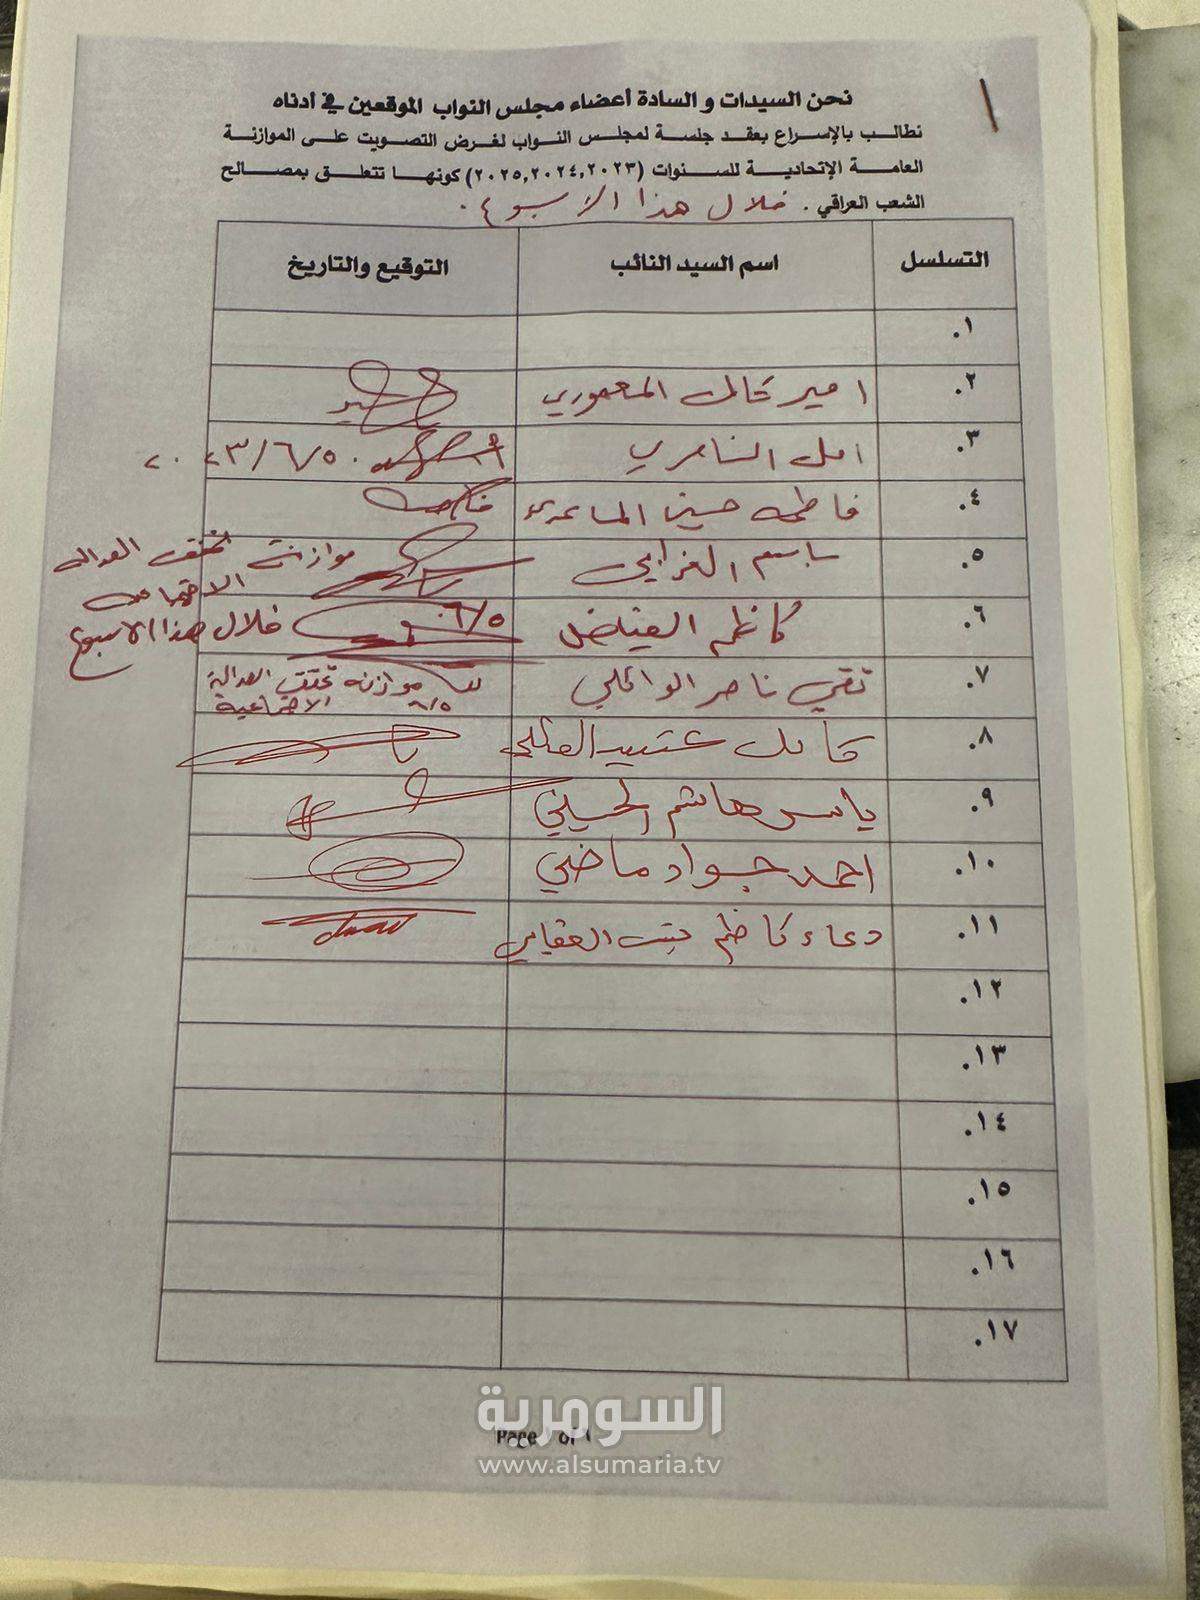 نحن السيدات و السادة أعضاء مجلس النواب الموقعين في أدناه
نطالب بالإسراع بعقد جلسة لمجلس النواب لغرض التصويت على الموازنة
العامة الإتحادية للسنوات (٢٠٢٥,٢٠٢٤,٢٠٢٣) كونها تتعلق بمصالح
الشعب العراقي . خلال هذا الأسبوع .
التسلسل اسم السيد النائب التوقيع والتاريخ
.١
.٢ امير كامل المعموري
.٣ امل الناصري ٢٠٢٣/٦/٥
.٤ فاطمة حسين
.٥ باسم الغرابي موازنة تحقق العدالة
الاجتماعية
.٦ كاظم الفياض ٦/٥ خلال هذا الاسبوع
.٧ تقي ناصر الوائلي موازنة تحقق العدالة
الاجتماعية ٦/٥
.٨ كامل
.٩ ياسر هاشم الحسيني
.١٠ احمد جواد ماضي
.١١ دعاء كاظم
.١٢
.١٣
.١٤
.١٥
.١٦
.١٧
السومرية
Page 1 of 1
www.alsumaria.tv